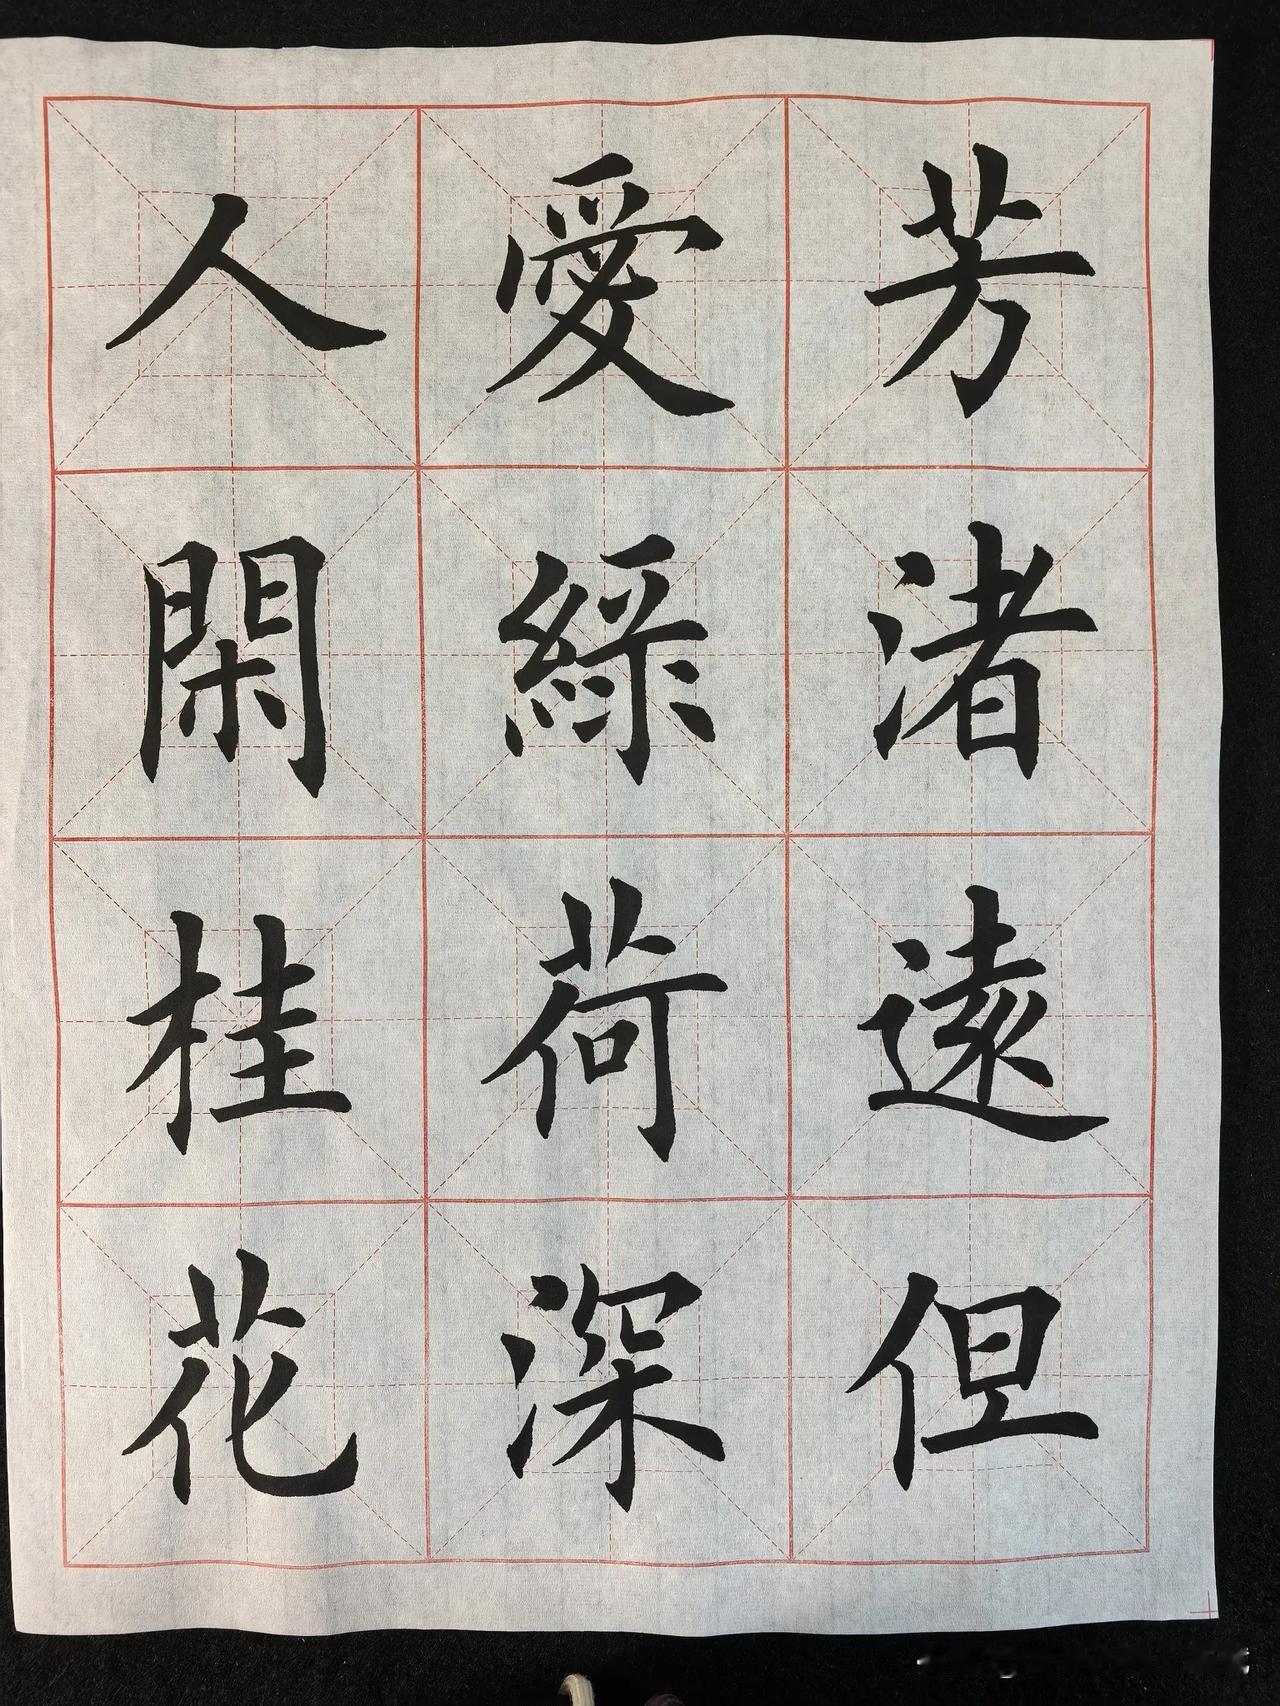 芳渚遠但
愛綠荷深
人閑桂花